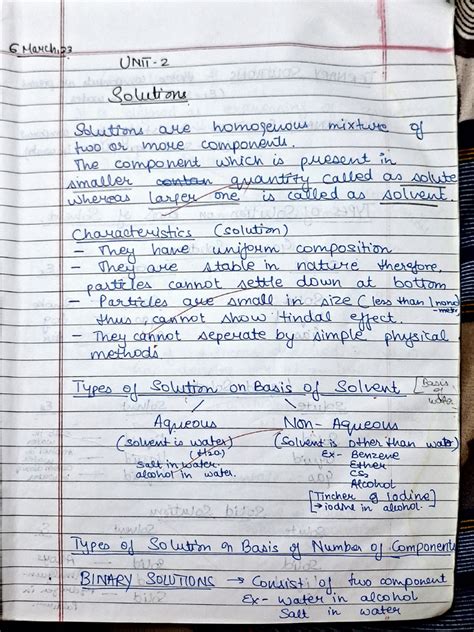 6 March, 23
UNIT-2
Solutions
Solutions are homogenous mixture of
two or more components.
The component which is present in
smaller contan quantity called as solute
whereas larger one is called as solvent.
Characteristics (solution)
- They have uniform composition
- They are stable in nature therefore,
particles cannot settle down at bottom
- Particles are small in size (less than 1 nano
-meter
thus cannot show tindal effect.
- They cannot seperate by simple physical
methods
Types of Solution on Basis of Solvent [Basis
of water
Aqueous Non-Aqueous
(solvent is water) (Solvent is other than water)
(H2O) Ex- Benzene
Salt in water. Ether
alcohol in water. CS2
Alcohol
[Tincher of Iodine]
→ iodine in alcohol.
Types of Solution on Basis of Number of Component
BINARY SOLUTIONS → Consist of two component
Ex- water in alcohol
Salt in water